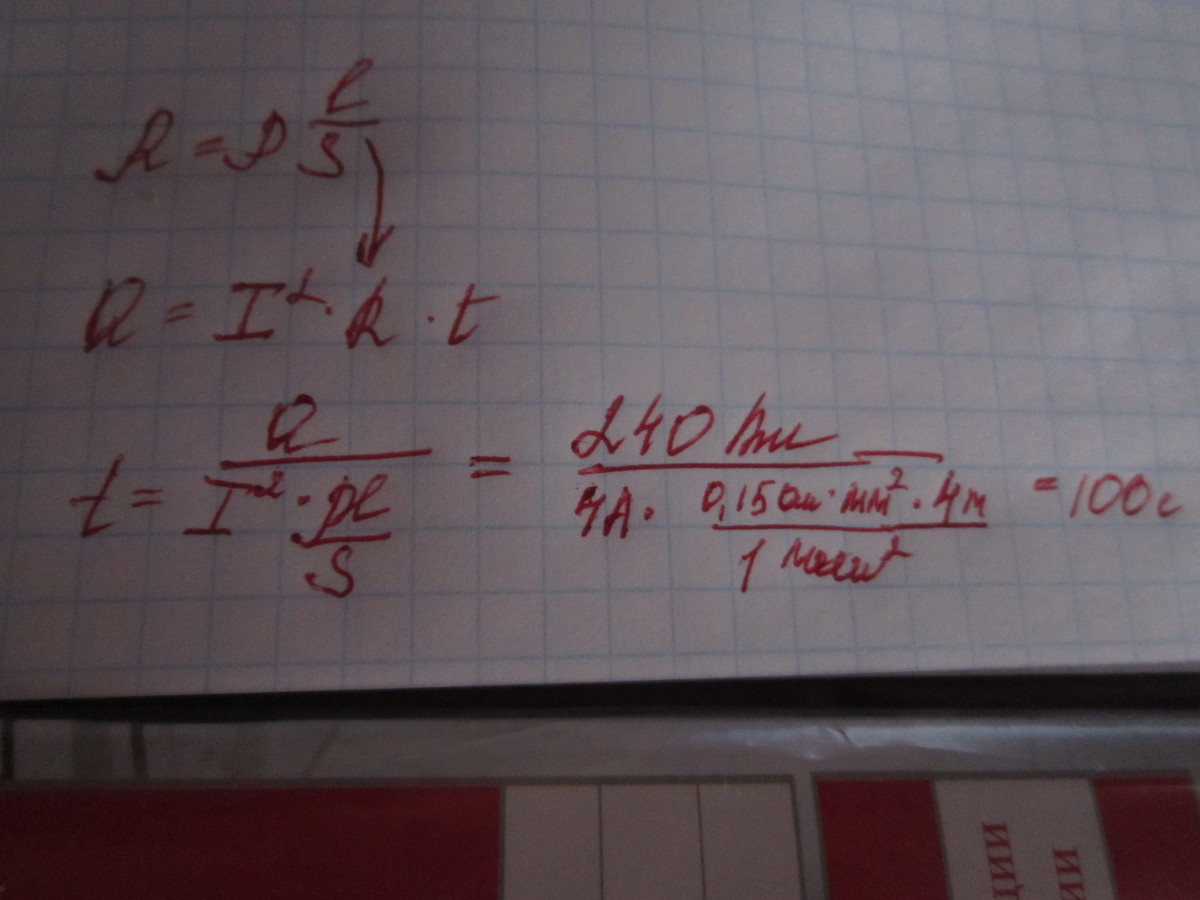 R = ρ l/S
Q = I² · R · t
t = Q / (I² · ρl/S) = 240 Дж / (4А · 0,15 Ом·мм² · 4м / 1 мм²) = 100с
ЦИИ
ИИ